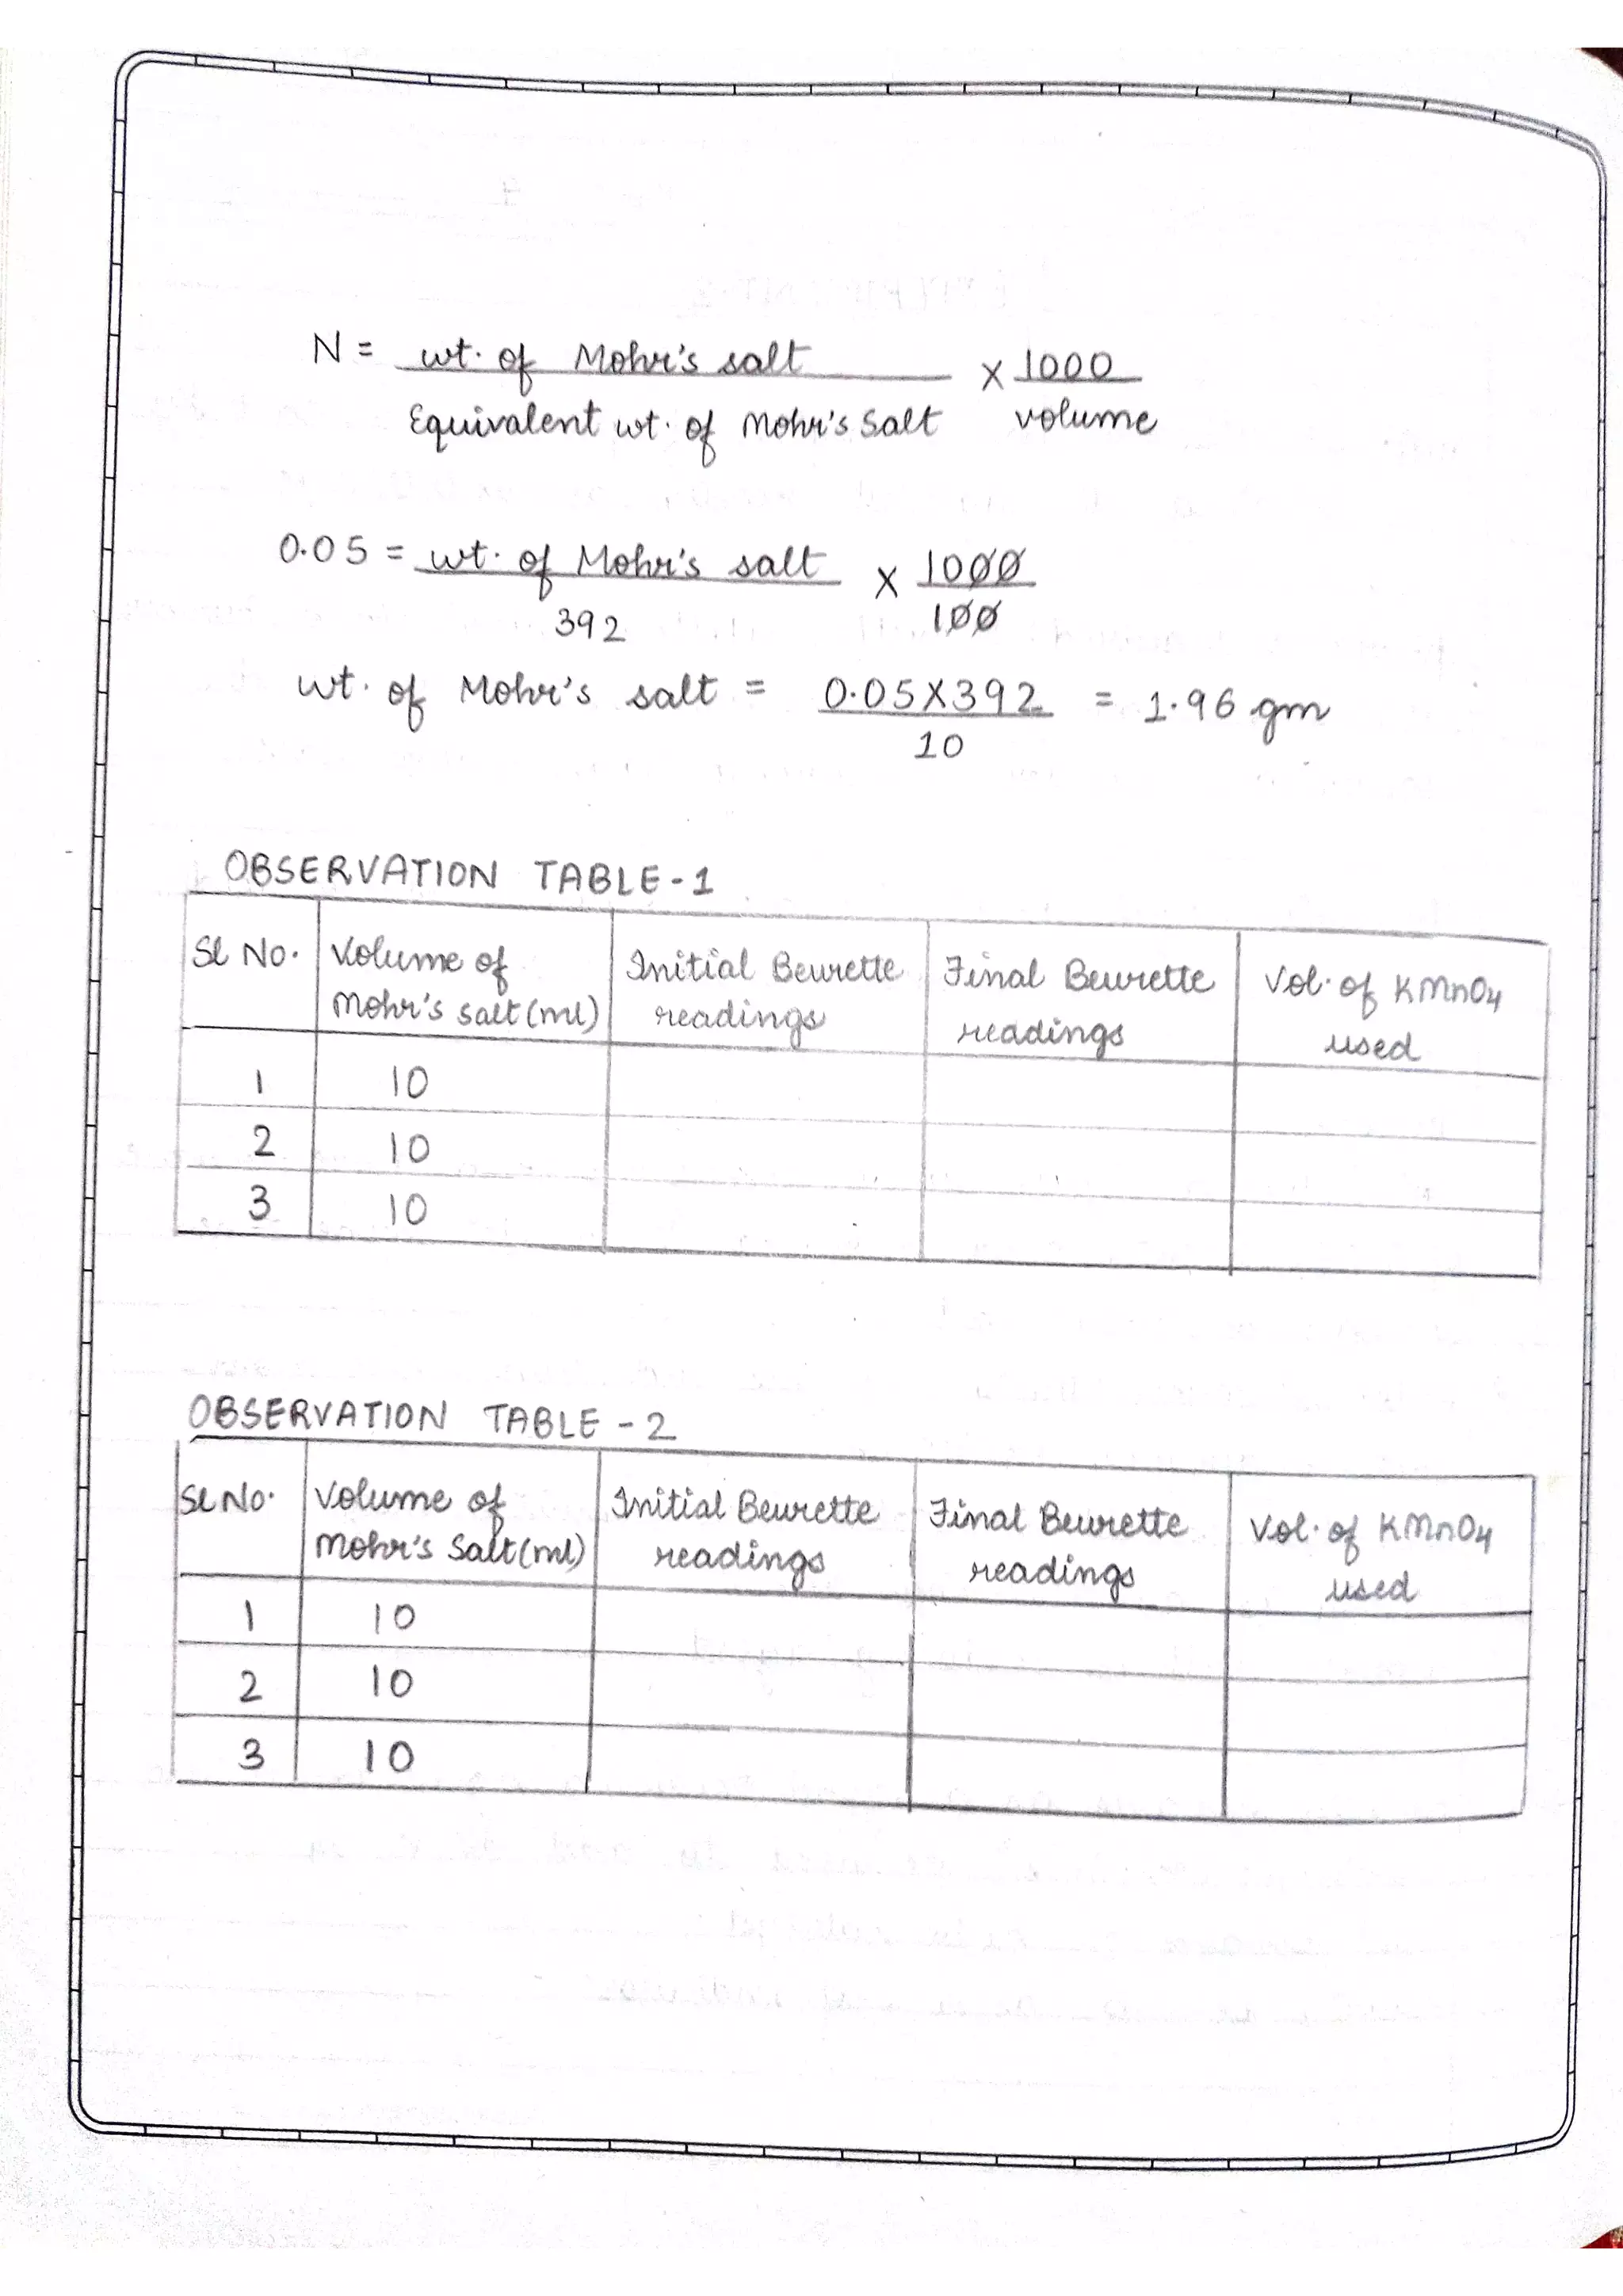 N = wt. of Mohr's salt × 1000
Equivalent wt. of Mohr's Salt volume
0.05 = wt. of Mohr's salt × 1000
392 100
wt. of Mohr's salt = 0.05×392 = 1.96 gm
10
OBSERVATION TABLE-1
Sl No. Volume of Initial Beurette Final Beurette Vol. of KMnO4
Mohr's salt (ml) readings readings used
1 10
2 10
3 10
OBSERVATION TABLE-2
Sl No. Volume of Initial Beurette Final Beurette Vol. of KMnO4
Mohr's Salt (ml) readings readings used
1 10
2 10
3 10